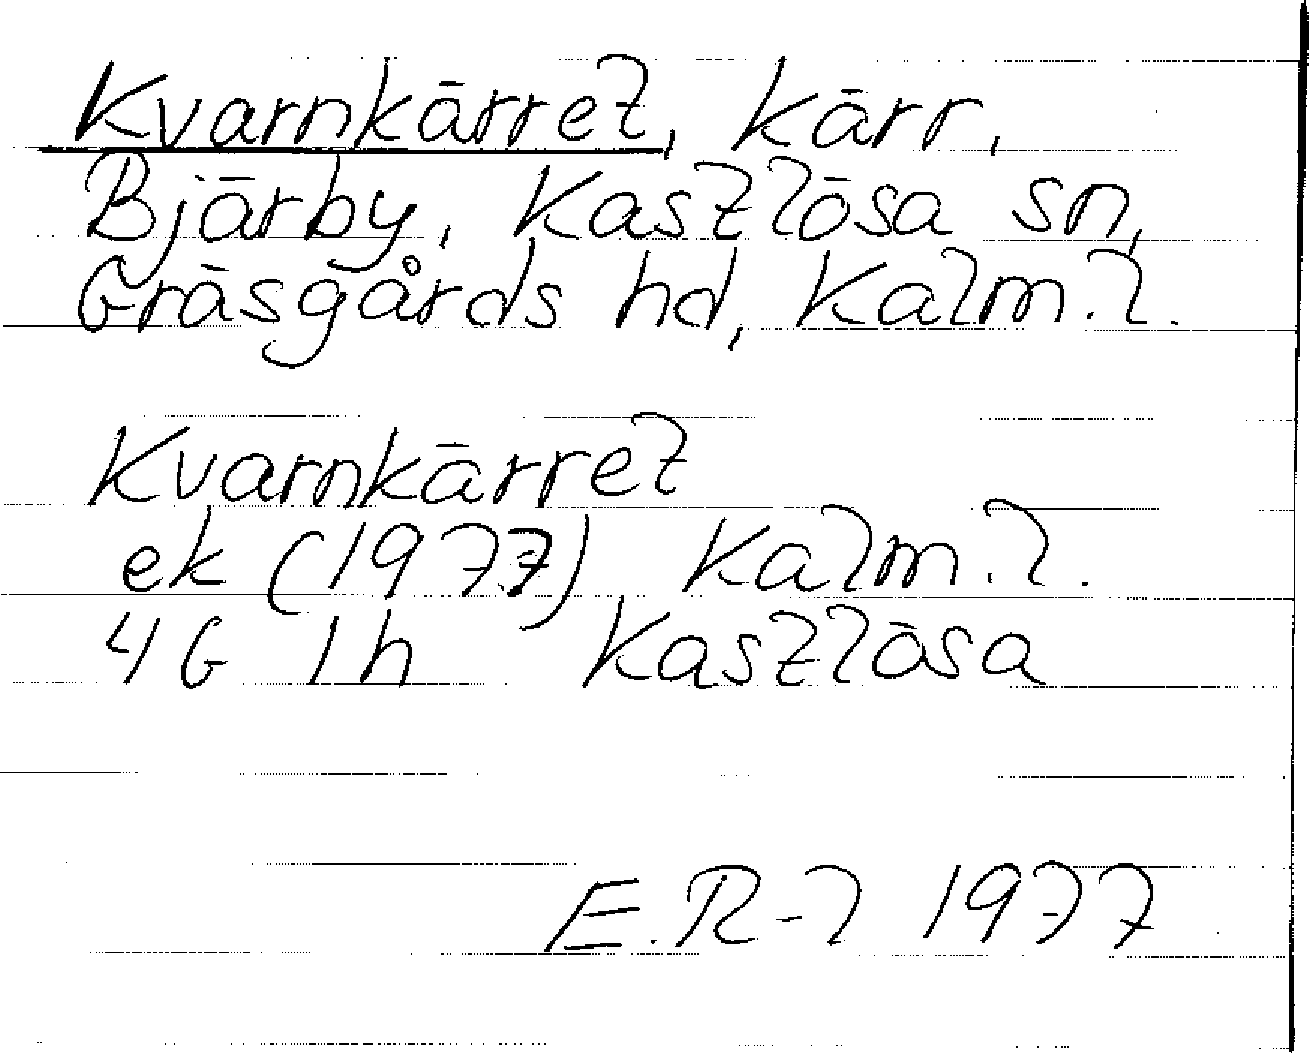 Kvarnkärret, kärr,
Bjärby, Kastlösa sn,
Gräsgårds hd, Kalm. l.
Kvarnkärret
ek (1977) Kalm. l.
4G 1h Kastlösa
E. R-l 1977